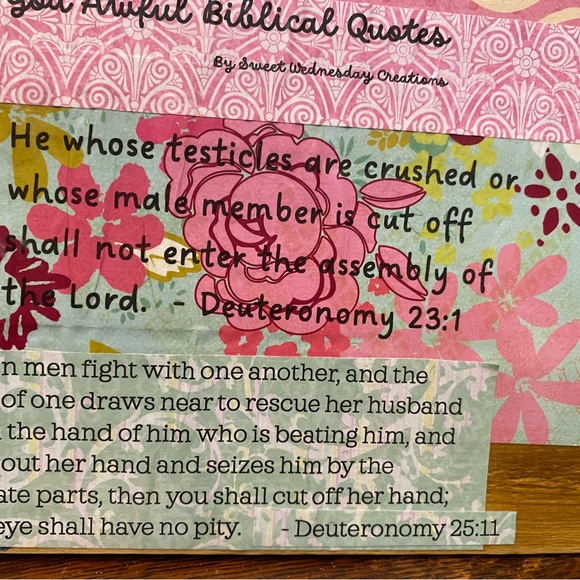 God Awful Biblical Quotes
By Sweet Wednesday Creations
He whose testicles are crushed or
whose male member is cut off
shall not enter the assembly of
the Lord. - Deuteronomy 23:1
n men fight with one another, and the
of one draws near to rescue her husband
the hand of him who is beating him, and
out her hand and seizes him by the
ate parts, then you shall cut off her hand;
eye shall have no pity. - Deuteronomy 25:11